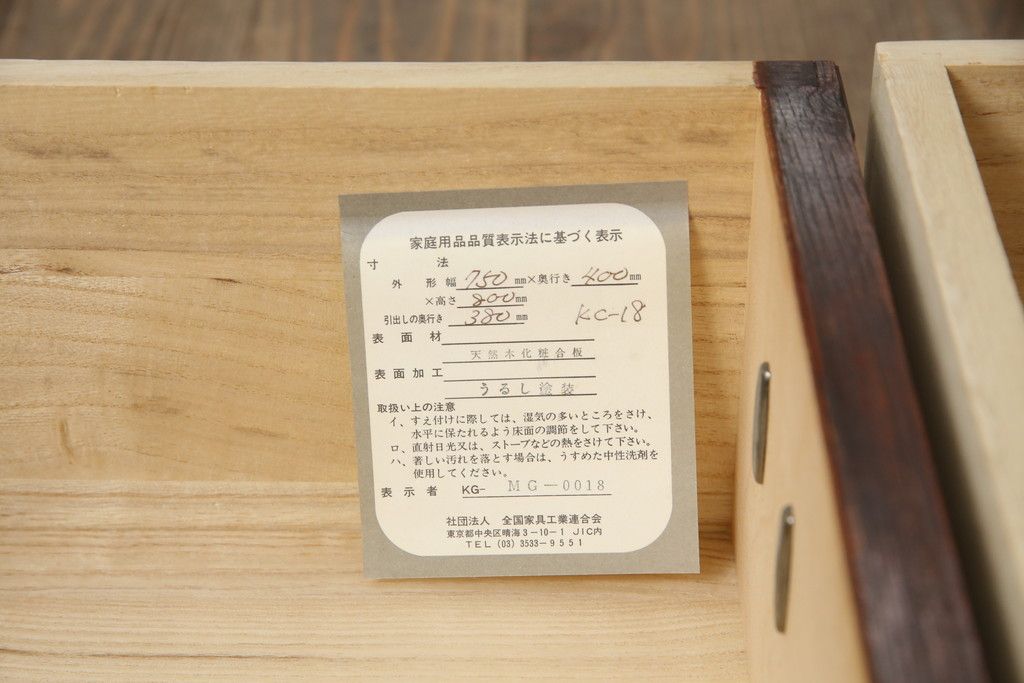 家庭用品品質表示法に基づく表示
寸法
外形幅 750 mm×奥行き 400 mm
×高さ 800 mm
引出しの奥行き 380 mm KC-18
表面材
天然木化粧合板
表面加工
うるし塗装
取扱い上の注意
イ、すえ付けに際しては、湿気の多いところをさけ、
水平に保たれるよう床面の調節をして下さい。
ロ、直射日光又は、ストーブなどの熱をさけて下さい。
ハ、著しい汚れを落とす場合は、うすめた中性洗剤を
使用してください。
表示者 KG- MG-0018
社団法人 全国家具工業連合会
東京都中央区晴海3-10-1 JIC内
TEL (03) 3533-9551